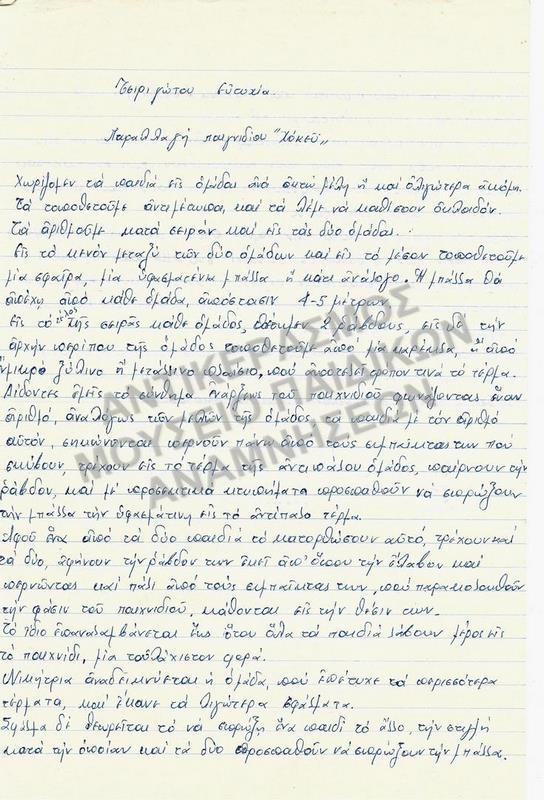 Τσιριγώτου Εὐτυχία.
Παραλλαγή παιγνιδίου "Χόκεϋ"
Χωρίζομεν τά παιδιά εἰς ὁμάδας ἀνά ὀκτώ μέλη ἤ καί ὀλιγώτερα ἀκόμη.
Τά τοποθετοῦμε ἀντιμέτωπα, καί τά λέμε νά καθίσουν ὀκλαδόν.
Τά ἀριθμοῦμε κατά σειράν καί εἰς τάς δύο ὁμάδας.
Εἰς τό κενόν μεταξύ τῶν δύο ὁμάδων καί εἰς τό μέσον τοποθετοῦμε
μία σφαῖρα, μία ὑφασματένια μπάλλα ἤ κάτι ἀνάλογο. Ἡ μπάλλα θά
ἀπέχῃ ἀπό κάθε ὁμάδα, ἀπόστασιν 4-5 μέτρων
Εἰς τό τέλος τῆς σειρᾶς κάθε ὁμάδος, θέτομεν 2 ράβδους, εἰς δέ τήν
ἀρχήν περίπου τῆς ὁμάδος τοποθετοῦμε ἀπό μία καρέκλα, ἤ ἀπό
μικρό ξύλινο ἤ μετάλλινο πλαίσιο, πού ἀποτελεῖ τρόπον τινά τό τέρμα.
Δίδοντες ἐμεῖς τό σύνθημα ἐνάρξεως τοῦ παιχνιδιοῦ φωνάζοντας ἕναν
ἀριθμό, ἀναλόγως τῶν μελῶν τῆς ὁμάδος, τά παιδιά μέ τόν ἀριθμό
αὐτόν, σηκώνονται περνοῦν πάνω ἀπό τούς συμπαίκτας των πού
σκύβουν, τρέχουν εἰς τό τέρμα τῆς ἀντιπάλου ὁμάδος, παίρνουν τήν
ράβδον, καί μέ προσεκτικά κτυπήματα προσπαθοῦν νά σπρώξουν
τήν μπάλλα τήν ὑφασμάτινη εἰς τό ἀντίπαλο τέρμα.
Ἀφοῦ ἕνα ἀπό τά δύο παιδιά τό κατορθώσουν αὐτό, τρέχουν καί
τά δύο, ἀφήνουν τήν ράβδον των ἐκεῖ ἀπ' ὅπου τήν ἔλαβον καί
περνῶντας καί πάλι ἀπό τούς συμπαίκτας των, πού παρακολουθοῦν
τήν φάσιν τοῦ παιχνιδιοῦ, κάθονται εἰς τήν θέσιν των.
Τό ἴδιο ἐπαναλαμβάνεται ἕως ὅτου ὅλα τά παιδιά λάβουν μέρος εἰς
τό παιχνίδι, μία τοὐλάχιστον φορά.
Νικήτρια ἀναδεικνύεται ἡ ὁμάδα, πού ἐπέτυχε τά περισσότερα
τέρματα, καί ἔκανε τά λιγώτερα σφάλματα.
Σφάλμα δέ θεωρεῖται τό νά σπρώξῃ ἕνα παιδί τό ἄλλο, τήν στιγμή
κατά τήν ὁποίαν καί τά δύο προσπαθοῦν νά σπρώξουν τήν μπάλλα.
ΑΝΤΙΚΕΙΜΕΝΟ
ΜΟΥΣΕΙΟ ΠΑΙΔΙΚΩΝ
ΑΝΑΜΝΗΣΕΩΝ